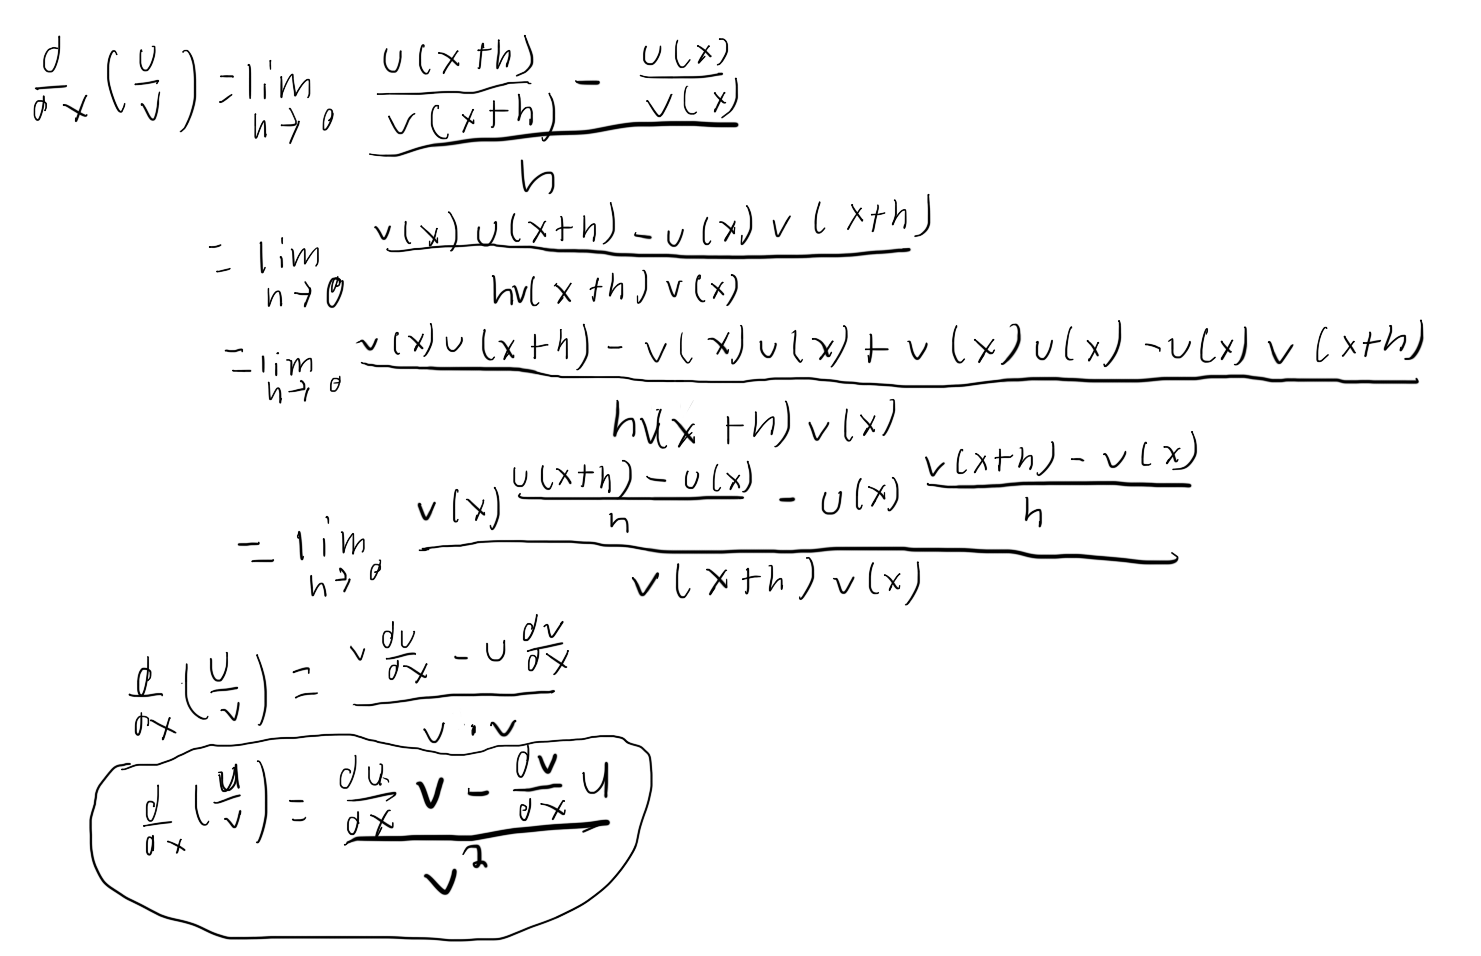 d/dx (u/v) = lim h→0 (u(x+h)/v(x+h) - u(x)/v(x))/h
= lim h→0 (v(x) u(x+h) - u(x) v(x+h))/(hv(x+h) v(x))
= lim h→0 (v(x) u(x+h) - v(x) u(x) + v(x) u(x) - u(x) v(x+h))/(hv(x+h) v(x))
= lim h→0 (v(x) (u(x+h) - u(x))/h - u(x) (v(x+h) - v(x))/h)/(v(x+h) v(x))
d/dx (u/v) = (v du/dx - u dv/dx)/(v · v)
d/dx (u/v) = (du/dx v - dv/dx u)/v²